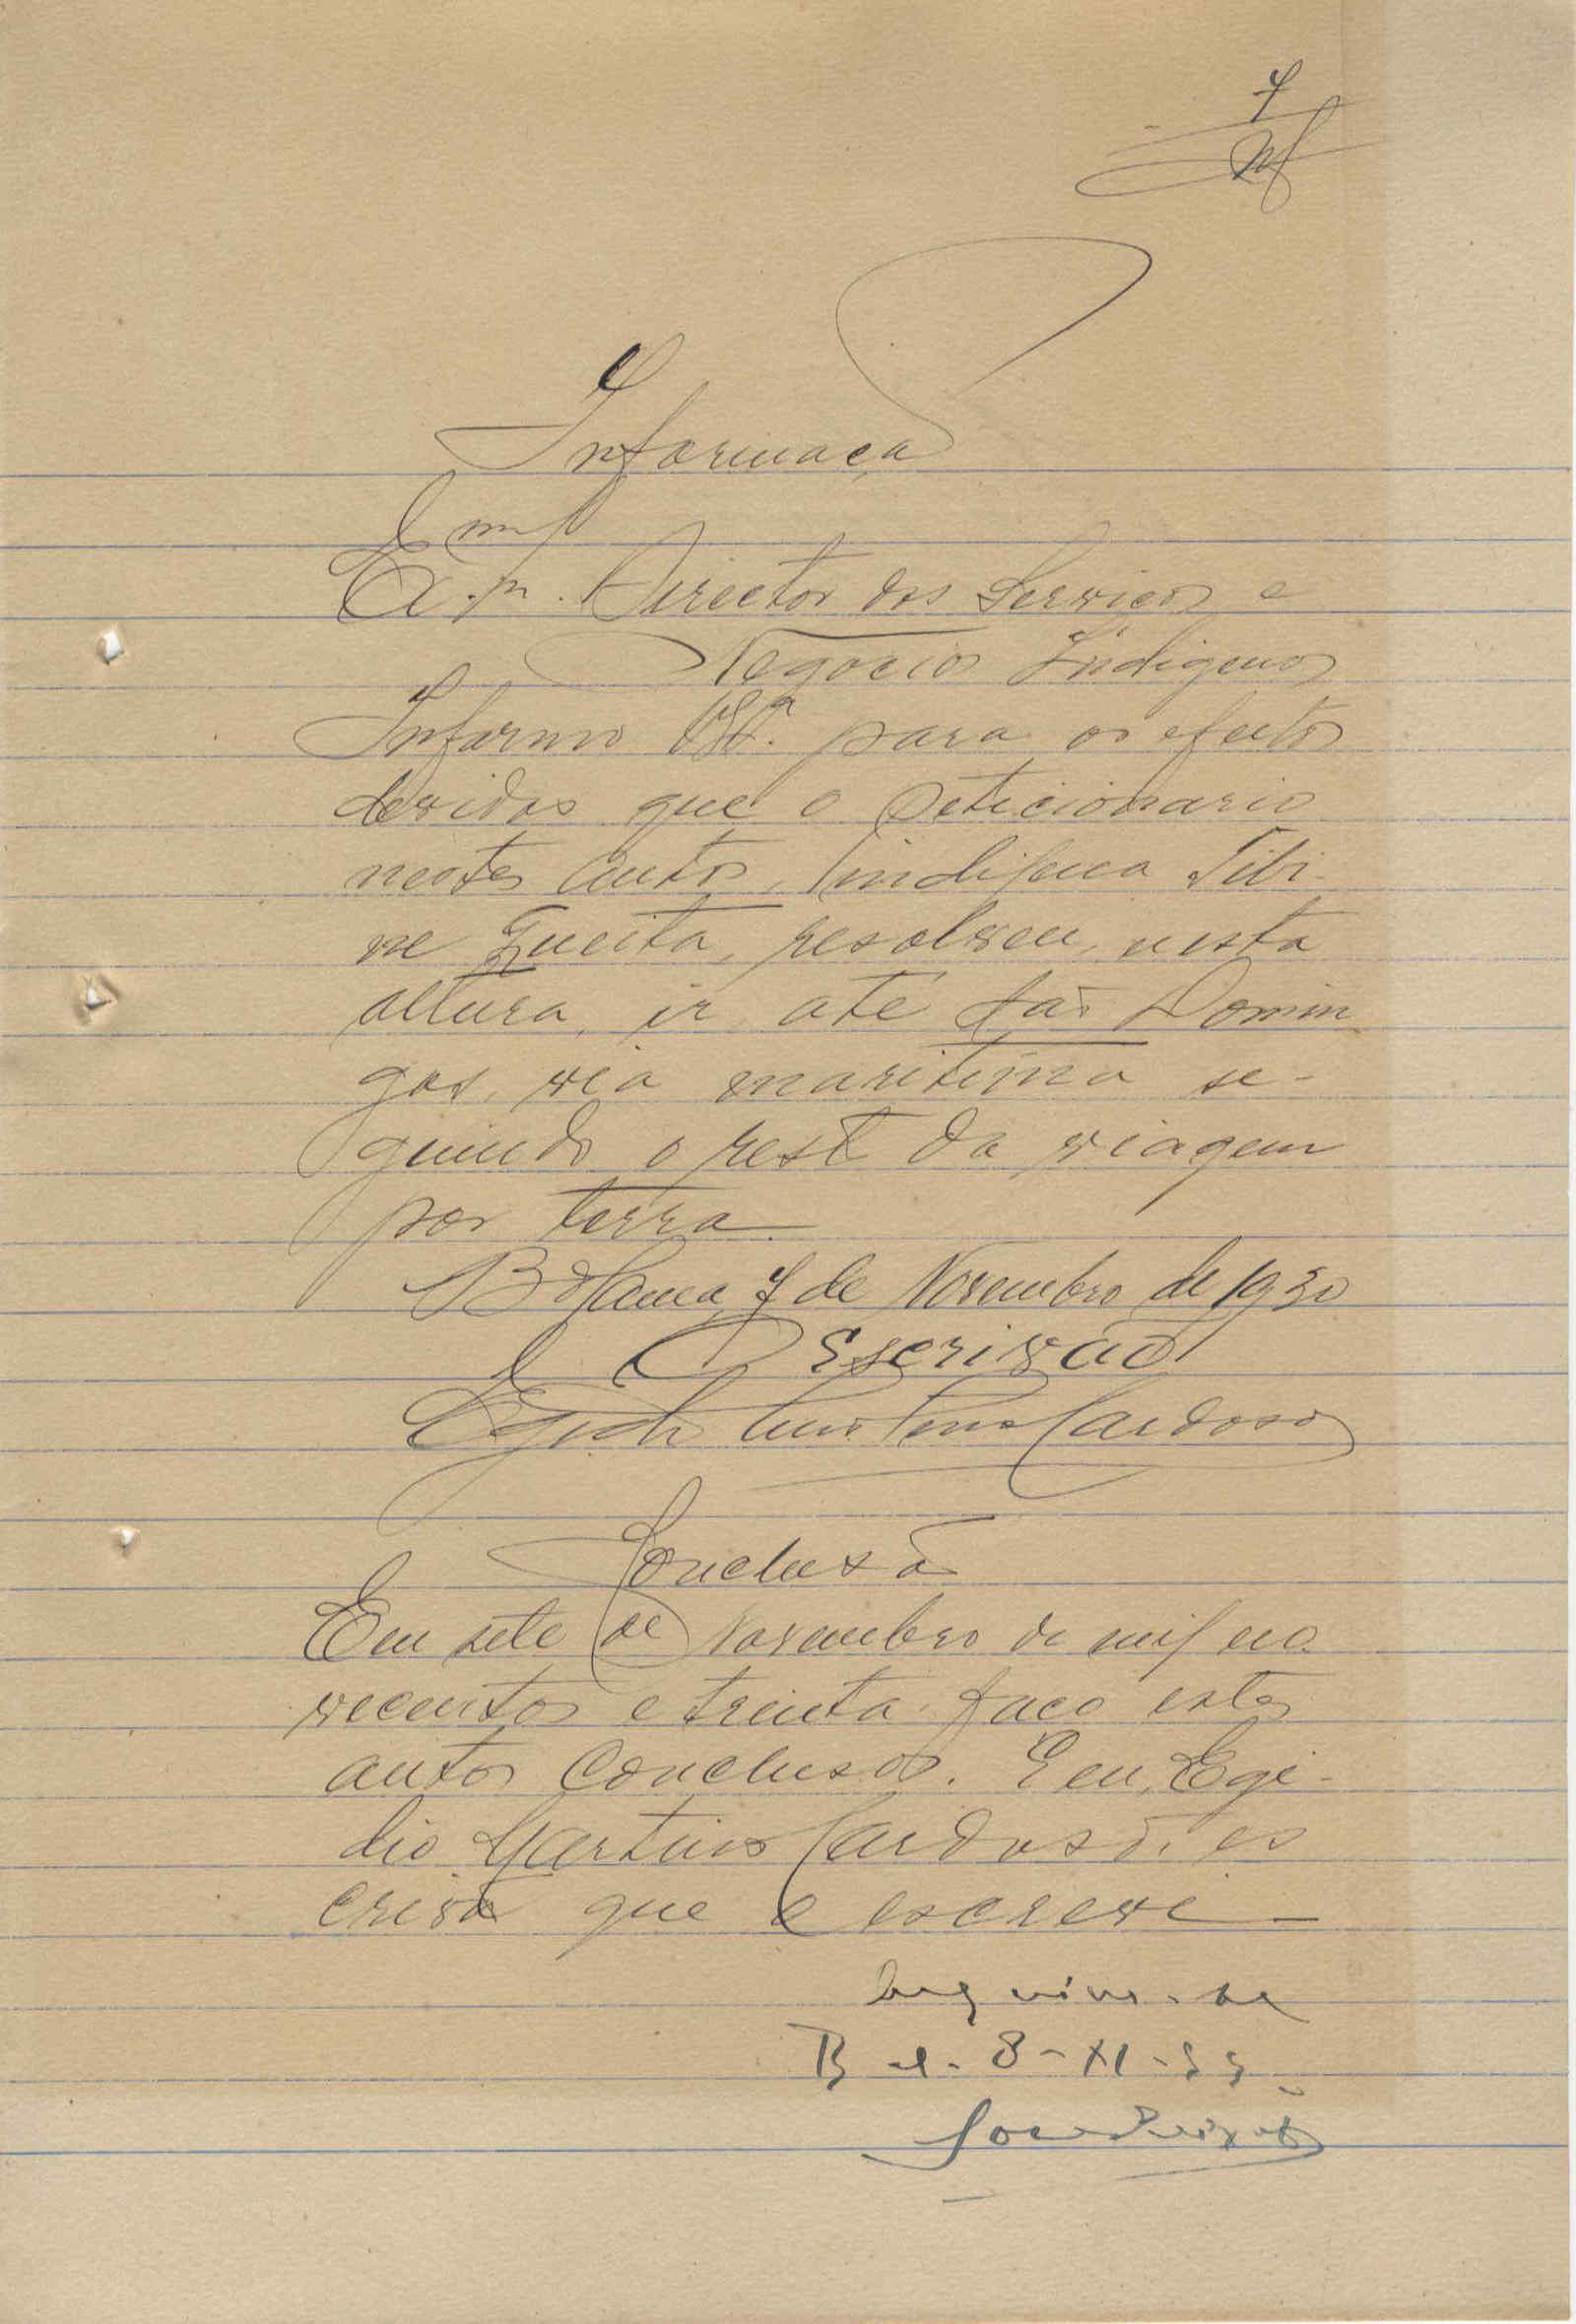 7
Informação
Exmº
Sr. Director dos Serviços e
Negocios Indigenas
Informo V. Exª. para os efeitos
devidos que o peticionario
nestes autos, indigena
resolveu, nesta
altura, ir até São Domin
gos, via maritima se-
guindo o resto da viagem
por terra.
Bolama, 7 de Novembro de 1930
O Escrivão
Egidio Cardoso
Conclusão
Em sete de Novembro de mil no-
vecentos e trinta faço estes
autos conclusos. E eu, Egi-
dio Martins Cardoso, es
crivão que o escrevi —
Arquive-se
Bol. 8-XI-30